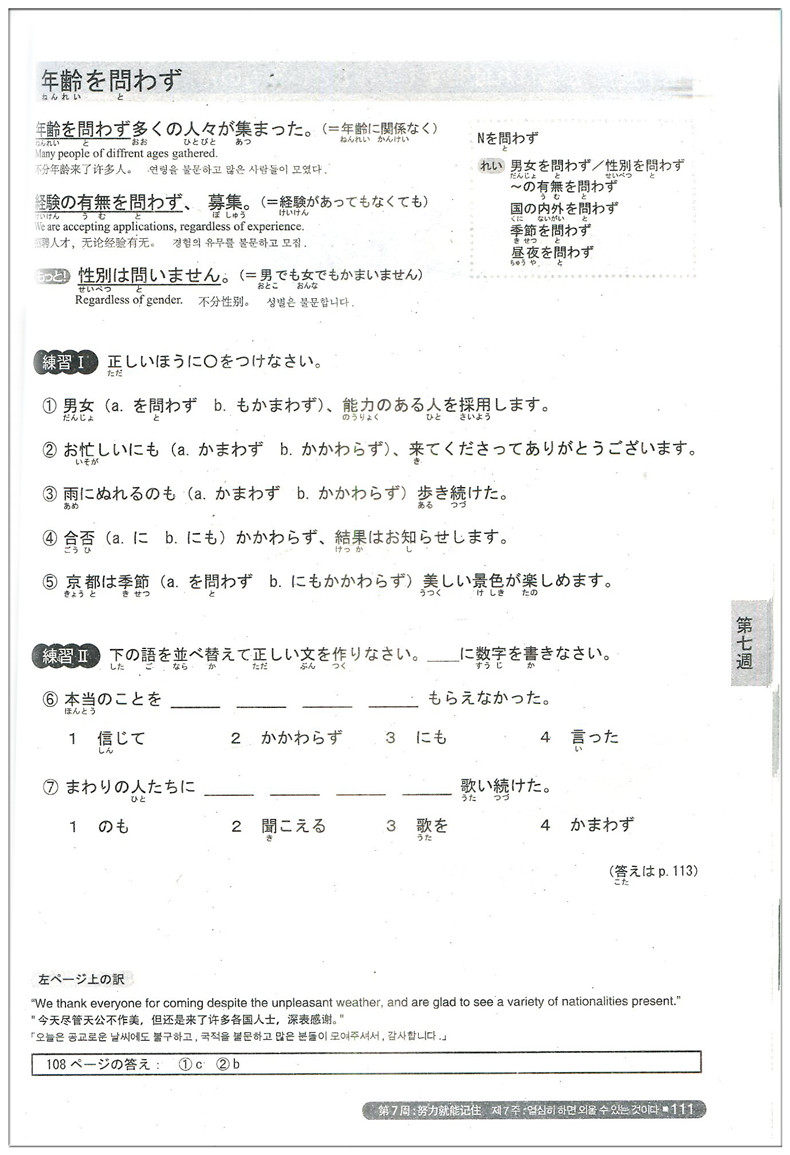 年齢を問わず
ねんれい と
年齢を問わず多くの人々が集まった。（＝年齢に関係なく）
ねんれい と おお ひとびと あつ ねんれい かんけい
Many people of diffrent ages gathered.
不分年龄来了许多人。 연령을 불문하고 많은 사람들이 모였다.
経験の有無を問わず、募集。（＝経験があってもなくても）
けいけん うむ と ぼしゅう けいけん
We are accepting applications, regardless of experience.
人才，无论经验有无。 경험의 유무를 불문하고 모집.
もっと! 性別は問いません。（＝男でも女でもかまいません）
せいべつ と おとこ おんな
Regardless of gender. 不分性别。 성별은 불문합니다.
Nを問わず
と
れい 男女を問わず／性別を問わず
だんじょ と せいべつ と
～の有無を問わず
うむ と
国の内外を問わず
くに ないがい と
季節を問わず
きせつ と
昼夜を問わず
ちゅうや と
練習Ⅰ 正しいほうに○をつけなさい。
ただ
① 男女（a. を問わず b. もかまわず）、能力のある人を採用します。
だんじょ と のうりょく ひと さいよう
② お忙しいにも（a. かまわず b. かかわらず）、来てくださってありがとうございます。
いそが き
③ 雨にぬれるのも（a. かまわず b. かかわらず）歩き続けた。
あめ ある つづ
④ 合否（a. に b. にも）かかわらず、結果はお知らせします。
ごうひ けっか し
⑤ 京都は季節（a. を問わず b. にもかかわらず）美しい景色が楽しめます。
きょうと きせつ と うつく けしき たの
練習Ⅱ 下の語を並べ替えて正しい文を作りなさい。____に数字を書きなさい。
した ご なら か ただ ぶん つく すうじ か
⑥ 本当のことを ____ ____ ____ ____ もらえなかった。
ほんとう
1 信じて 2 かかわらず 3 にも 4 言った
しん い
⑦ まわりの人たちに ____ ____ ____ ____ 歌い続けた。
ひと うた つづ
1 のも 2 聞こえる 3 歌を 4 かまわず
き うた
（答えはp.113）
こた
第七週
左ページ上の訳
“We thank everyone for coming despite the unpleasant weather, and are glad to see a variety of nationalities present.”
"今天尽管天公不作美，但还是来了许多各国人士，深表感谢。"
「오늘은 공교로운 날씨에도 불구하고, 국적을 불문하고 많은 분들이 모여주셔서, 감사합니다.」
108 ページの答え： ①c ②b
第7周：努力就能记住 제7주：열심히 하면 외울 수 있는 것이다 ■111